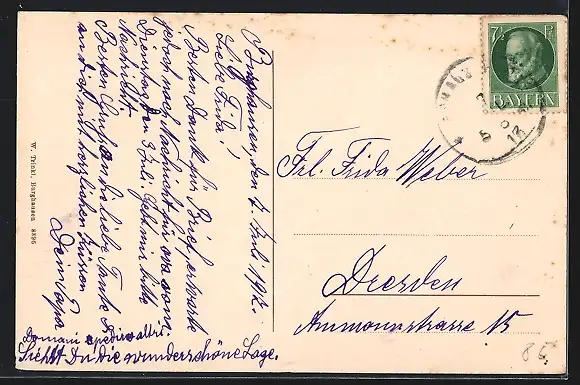 Burghausen, den 2. Juli 1917.
Liebe Frida!
Besten Dank für Brief, erwarte
jedoch noch Nachricht bis
Dienstag, den 3. Juli. Geh mir bitte
Nachricht.
Besten Gruß an die liebe Tante
an dich mit herzlichen Grüssen
Dein Papa
Domani spedire altri.
Siehst Du die wunderschöne Lage.
W. Trinkl, Burghausen 8396
7½ Pf
BAYERN
Frl. Frida Weber
Dresden
Ammonnstrasse 15